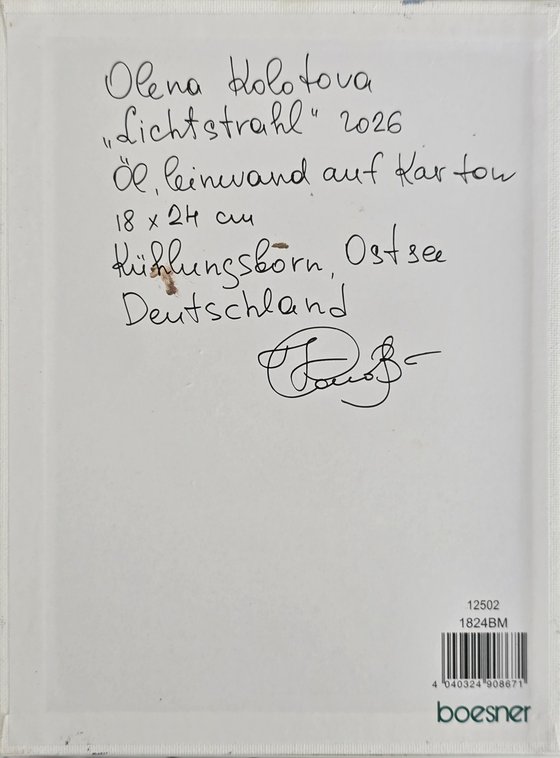 Olena Kolotova
„Lichtstrahl“ 2026
Öl, leinwand auf Karton
18 x 24 cm
Kühlungsborn, Ostsee
Deutschland
12502
1824BM
4 040324 908671
boesner